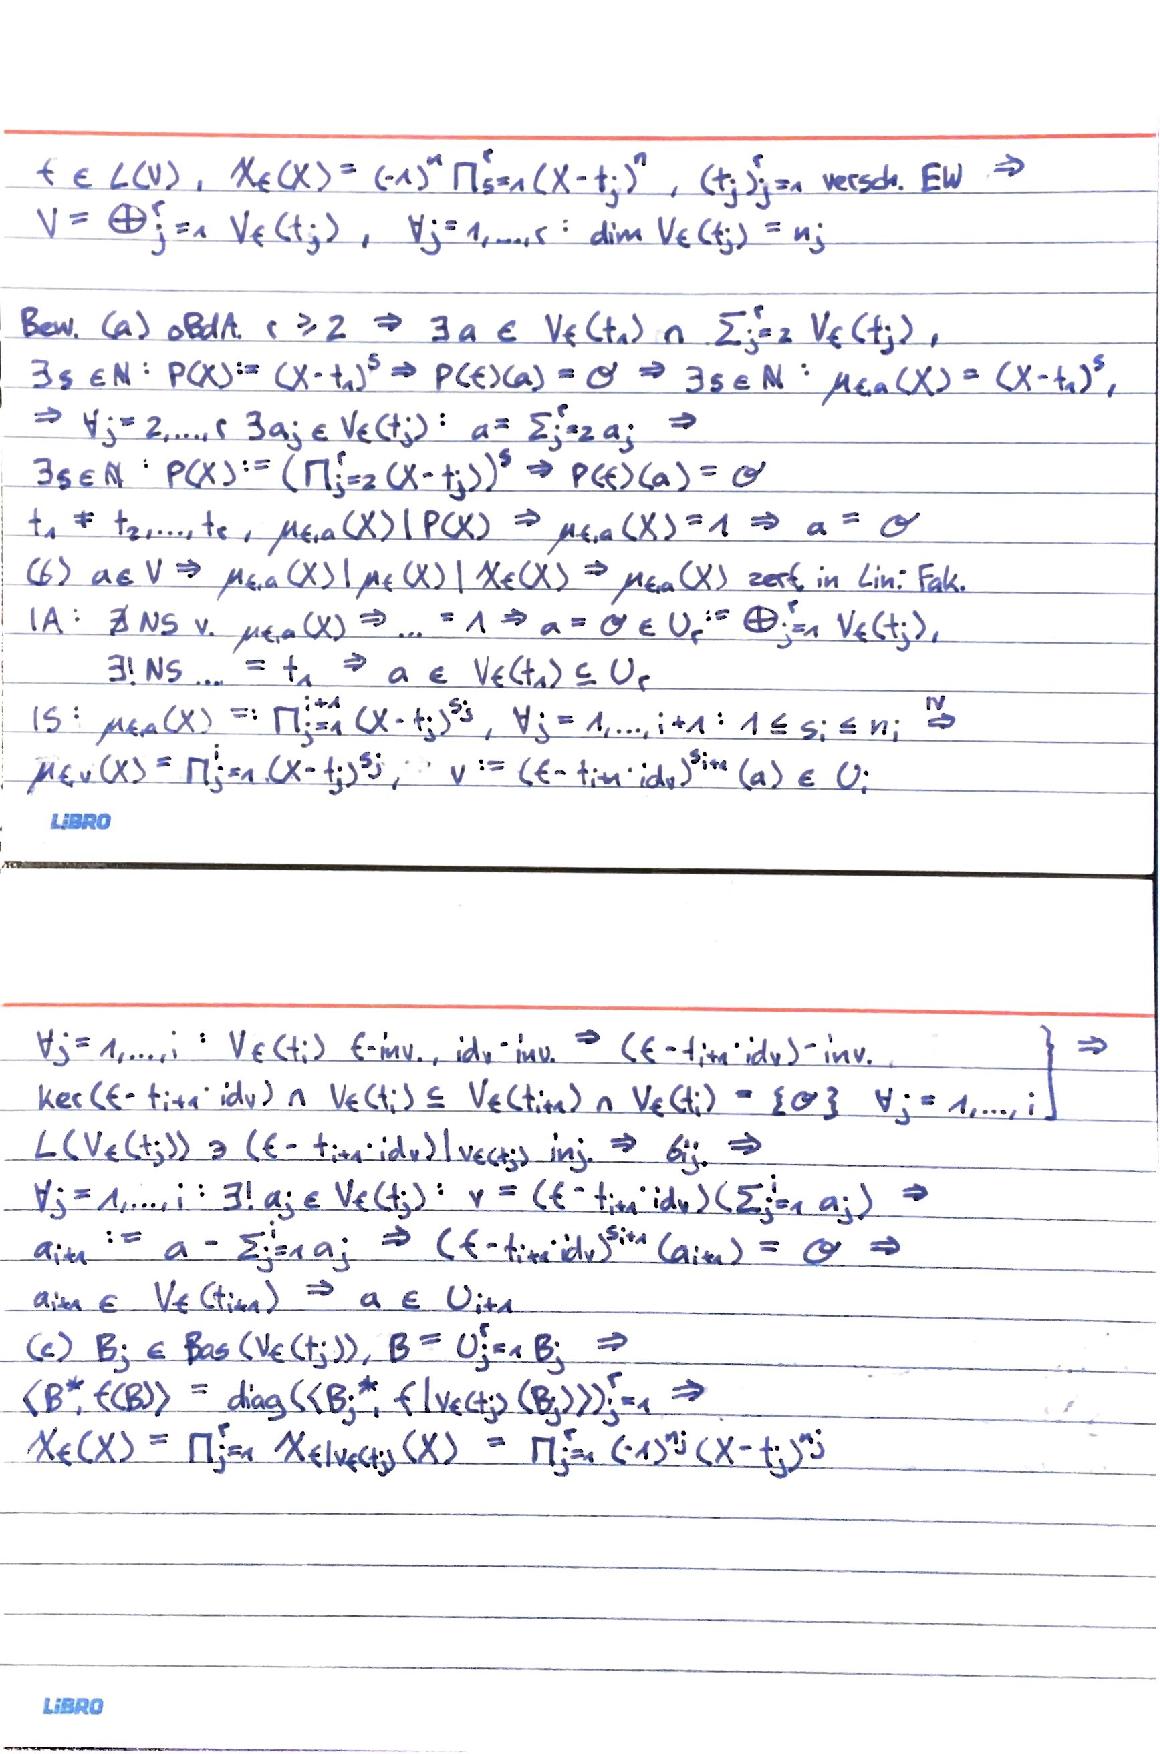 f ∈ L(V), χ_f(X) = (-1)^n ∏_{s=1}^r (X-t_j)^n, (t_j)_{j=1}^r versch. EW ⇒
V = ⊕_{j=1}^r V_f(t_j), ∀j=1,...,r : dim V_f(t_j) = n_j
Bew. (a) oBdA. r ≥ 2 ⇒ ∃ a ∈ V_f(t_1) ∩ Σ_{j=2}^r V_f(t_j),
∃s ∈ ℕ : P(X) := (X-t_1)^s ⇒ P(f)(a) = 𝒪 ⇒ ∃s ∈ ℕ : μ_{f,a}(X) = (X-t_1)^s,
⇒ ∀j=2,...,r ∃a_j ∈ V_f(t_j) : a = Σ_{j=2}^r a_j ⇒
∃s ∈ ℕ : P(X) := (∏_{j=2}^r (X-t_j))^s ⇒ P(f)(a) = 𝒪
t_1 ≠ t_2,...,t_r, μ_{f,a}(X) | P(X) ⇒ μ_{f,a}(X) = 1 ⇒ a = 𝒪
(b) a ∈ V ⇒ μ_{f,a}(X) | μ_f(X) | χ_f(X) ⇒ μ_{f,a}(X) zerf. in Lin. Fak.
IA: ∄ NS v. μ_{f,a}(X) ⇒ ... = 1 ⇒ a = 𝒪 ∈ U_r := ⊕_{j=1}^r V_f(t_j),
∃! NS ... = t_1 ⇒ a ∈ V_f(t_1) ⊆ U_r
IS: μ_{f,a}(X) =: ∏_{j=1}^{i+1} (X-t_j)^{s_j}, ∀j=1,...,i+1 : 1 ≤ s_i ≤ n_i ⇒^{IV}
μ_{f,v}(X) = ∏_{j=1}^i (X-t_j)^{s_j}, v := (f-t_{i+1}·id_V)^{s_{i+1}}(a) ∈ U_i
LiBRO
∀j=1,...,i : V_f(t_i) f-inv., id_V-inv. ⇒ (f-t_{i+1}·id_V)-inv. } ⇒
ker(f-t_{i+1}·id_V) ∩ V_f(t_i) ⊆ V_f(t_{i+1}) ∩ V_f(t_i) = {𝒪} ∀j=1,...,i
L(V_f(t_j)) ∋ (f-t_{i+1}·id_V)|_{V_f(t_j)} inj. ⇒ bij. ⇒
∀j=1,...,i : ∃! a_j ∈ V_f(t_j) : v = (f-t_{i+1}·id_V)(Σ_{j=1}^i a_j) ⇒
a_{i+1} := a - Σ_{j=1}^i a_j ⇒ (f-t_{i+1}·id_V)^{s_{i+1}}(a_{i+1}) = 𝒪 ⇒
a_{i+1} ∈ V_f(t_{i+1}) ⇒ a ∈ U_{i+1}
(c) B_j ∈ Bas(V_f(t_j)), B = ∪_{j=1}^r B_j ⇒
⟨B*, f(B)⟩ = diag(⟨B_j*, f|_{V_f(t_j)}(B_j)⟩)_{j=1}^r ⇒
χ_f(X) = ∏_{j=1}^r χ_{f|V_f(t_j)}(X) = ∏_{j=1}^r (-1)^{n_j} (X-t_j)^{n_j}
LiBRO